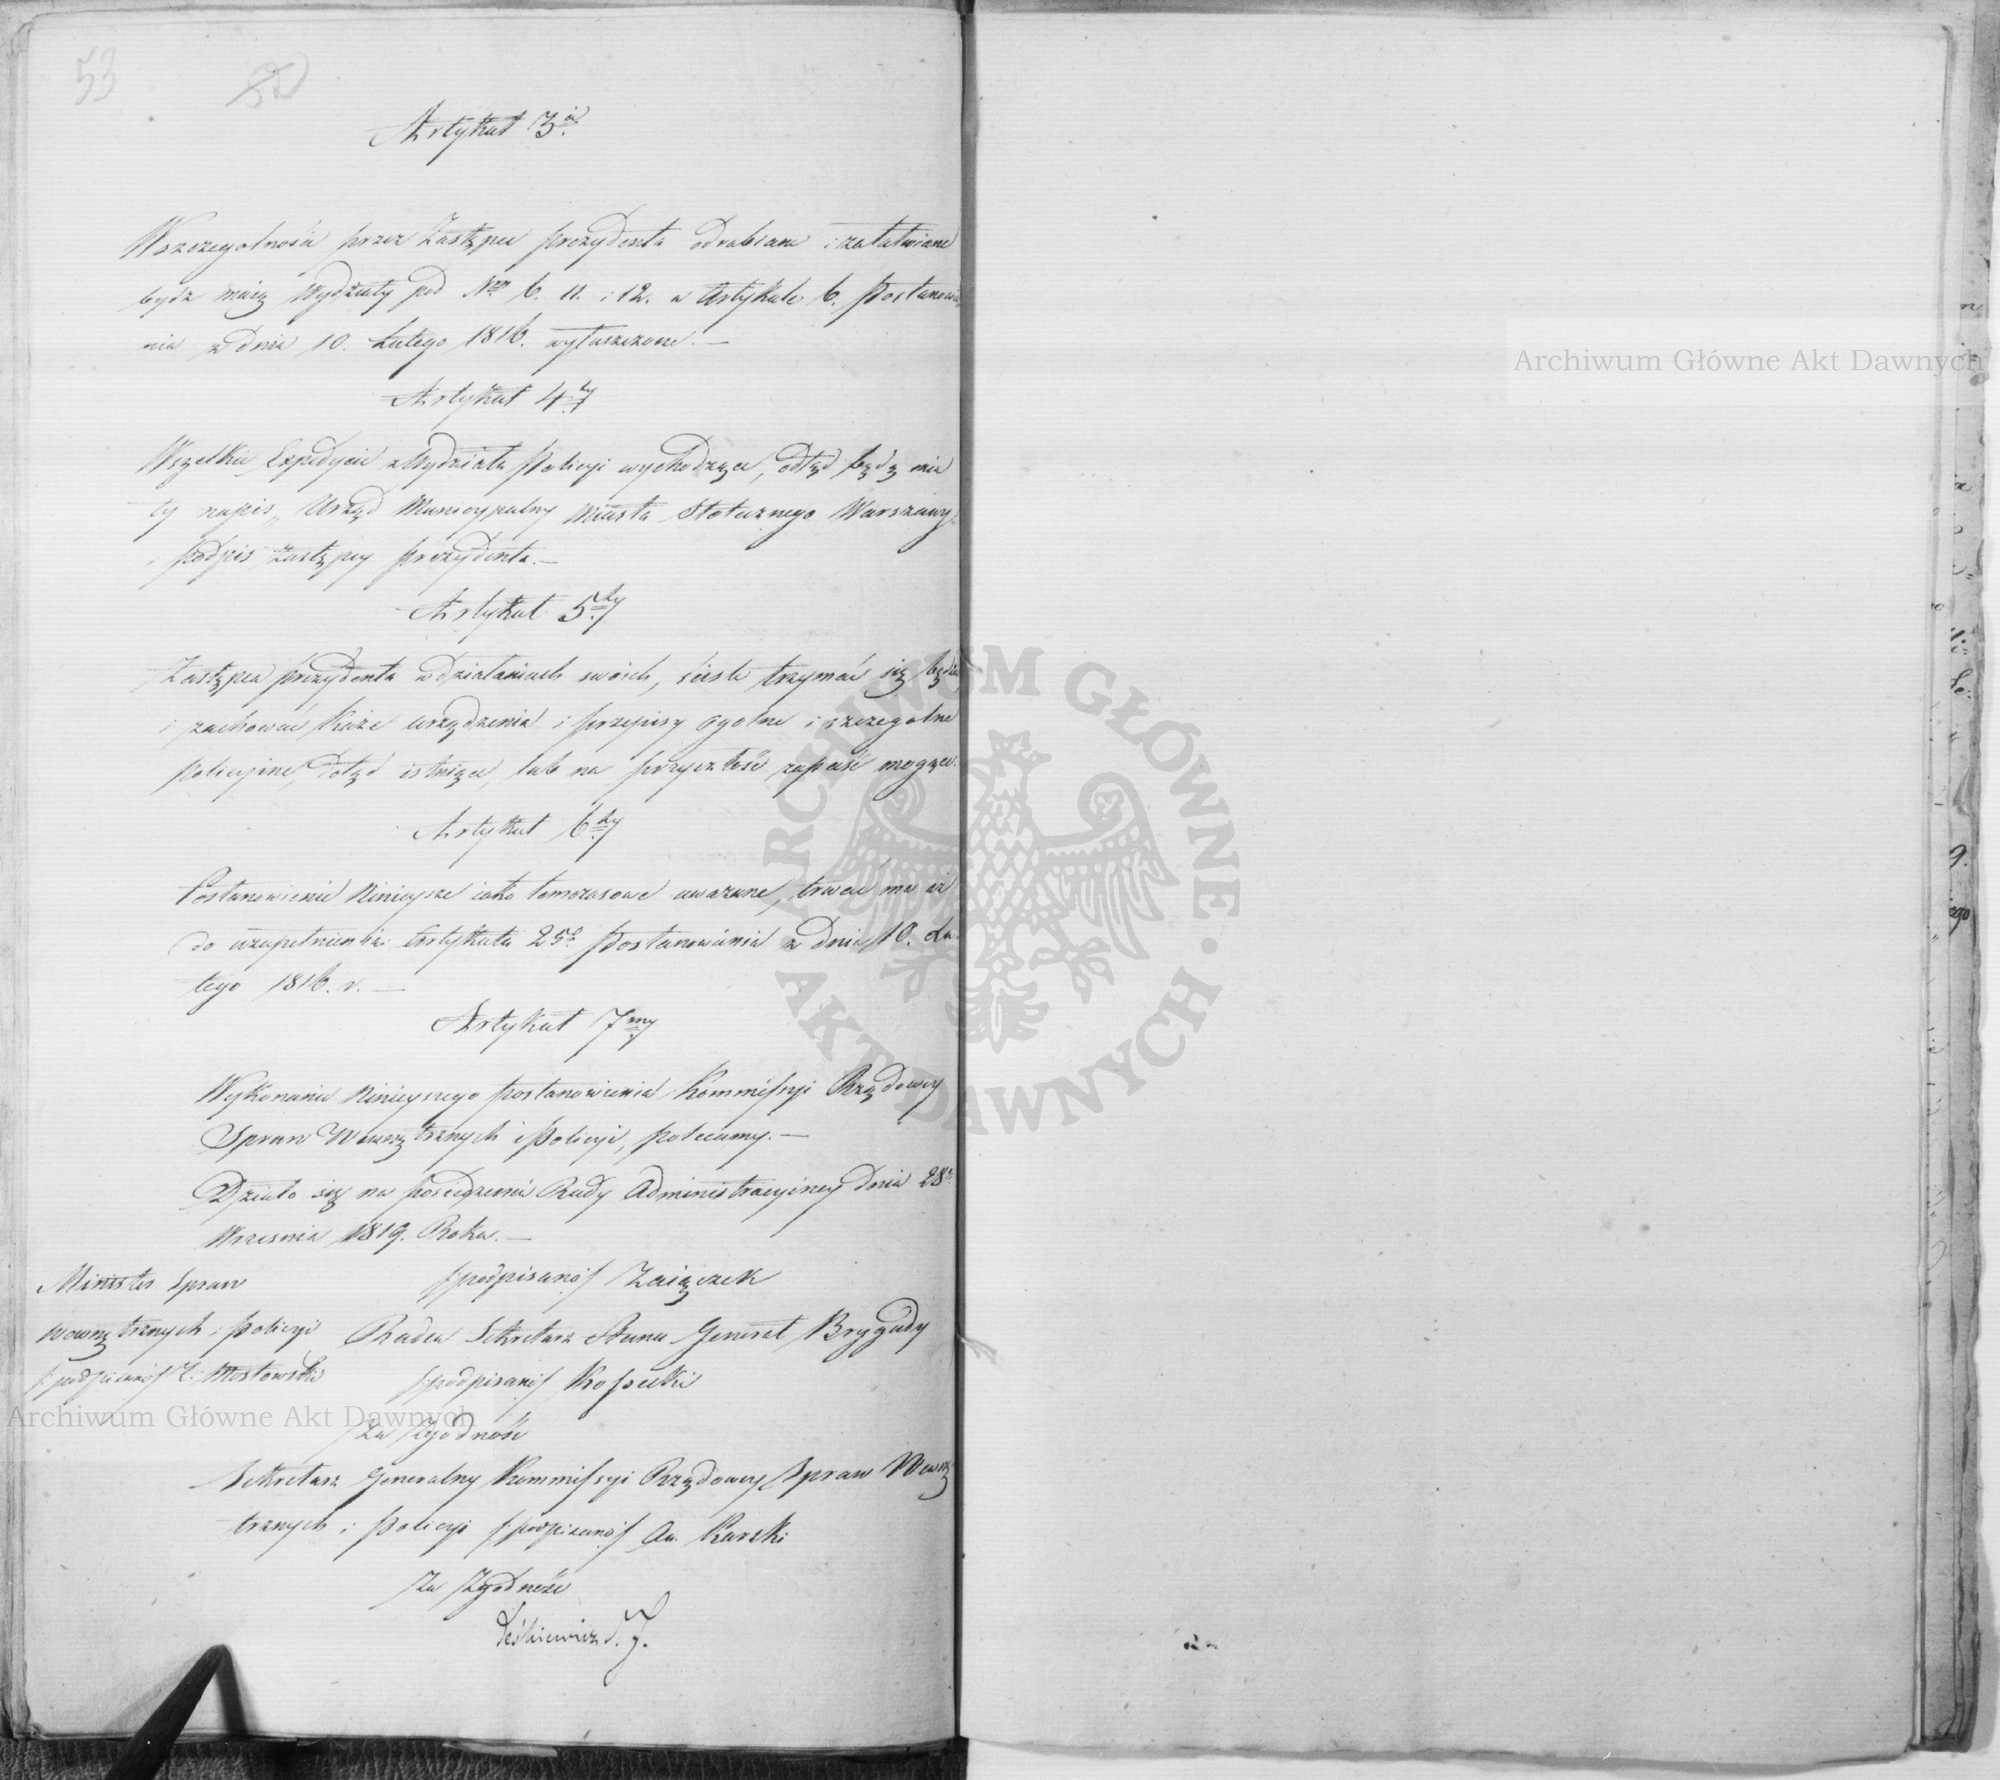 53
Artykuł 3ci
Wszczegolności przez Zastępcę prezydenta odrabiane i załatwiane
bydź maią Wydziały pod Nrm 6. 11. i 12. w Artykule 6. Postanowie
nia z dnia 10. Lutego 1816. wyłuszczone. —
Artykuł 4ty
Wszelkie Expedycie z Wydziału Policyi wychodzące, odtąd będą mia
ły napis „ Urząd Municypalny Miasta Stołecznego Warszawy"
i podpis Zastępcy prezydenta. —
Artykuł 5ty
Zastępca prezydenta w działaniach swoich, ściśle trzymać się będzie
i zachować każe urządzenia i przepisy ogolne i szczegolne
policyine, dotąd istnięce, lub na przyszłość zapaść mogące.
Artykuł 6ty
Postanowienie Ninieysze iako tymczasowe uważane, trwać ma aż
do uzupełnienia Artykułu 25o Postanowienia z dnia 10. Lu
tego 1816. r. —
Artykuł 7my
Wykonanie Ninieyszego postanowienia Kommissyi Rządowey
Spraw Wewnętrznych i Policyi, polecamy. —
Działo się na posiedzeniu Rady Administracyiney dnia 28o
Wrzesnia 1819. Roku. —
Minister Spraw
Wewnętrznych i Policyi
/:podpisano:/ T: Mostowski
/:podpisano:/ Zaiączek
Radca Sekretarz Stanu Generał Brygady
/:podpisano:/ Kossecki
Za Zgodność
Sekretarz Generalny Kommissyi Rządowey Spraw Wewnę
trznych i Policyi /:podpisano:/ Au. Karski
Za Zgodność
Leśkiewicz
Archiwum Główne Akt Dawnych
Archiwum Główne Akt Dawnych
ARCHIWUM GŁÓWNE · AKT DAWNYCH ·